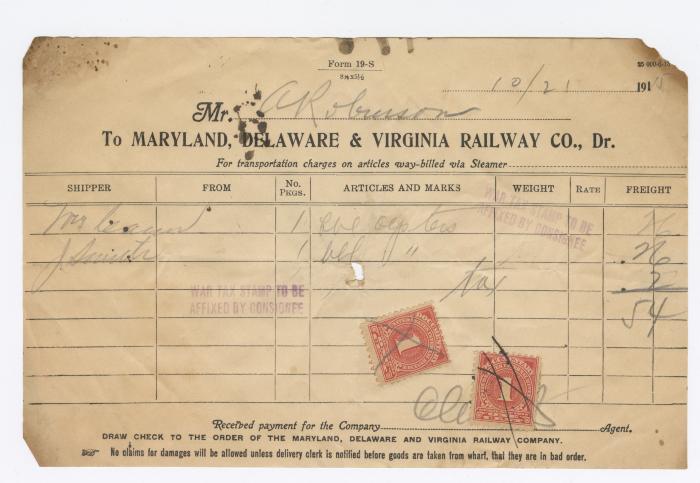 Form 19-S
8½x5½
25 000-6-15
10/21 1915
Mr. A Robinson
To MARYLAND, DELAWARE & VIRGINIA RAILWAY CO., Dr.
For transportation charges on articles way-billed via Steamer
SHIPPER FROM No. Pkgs. ARTICLES AND MARKS WEIGHT RATE FREIGHT
1 oysters 26
J Smith 1 bbl " .26
WAR TAX STAMP TO BE AFFIXED BY CONSIGNEE
tax .2
WAR TAX STAMP TO BE AFFIXED BY CONSIGNEE
54
1
1
Received payment for the Company Agent.
DRAW CHECK TO THE ORDER OF THE MARYLAND, DELAWARE AND VIRGINIA RAILWAY COMPANY.
No claims for damages will be allowed unless delivery clerk is notified before goods are taken from wharf, that they are in bad order.